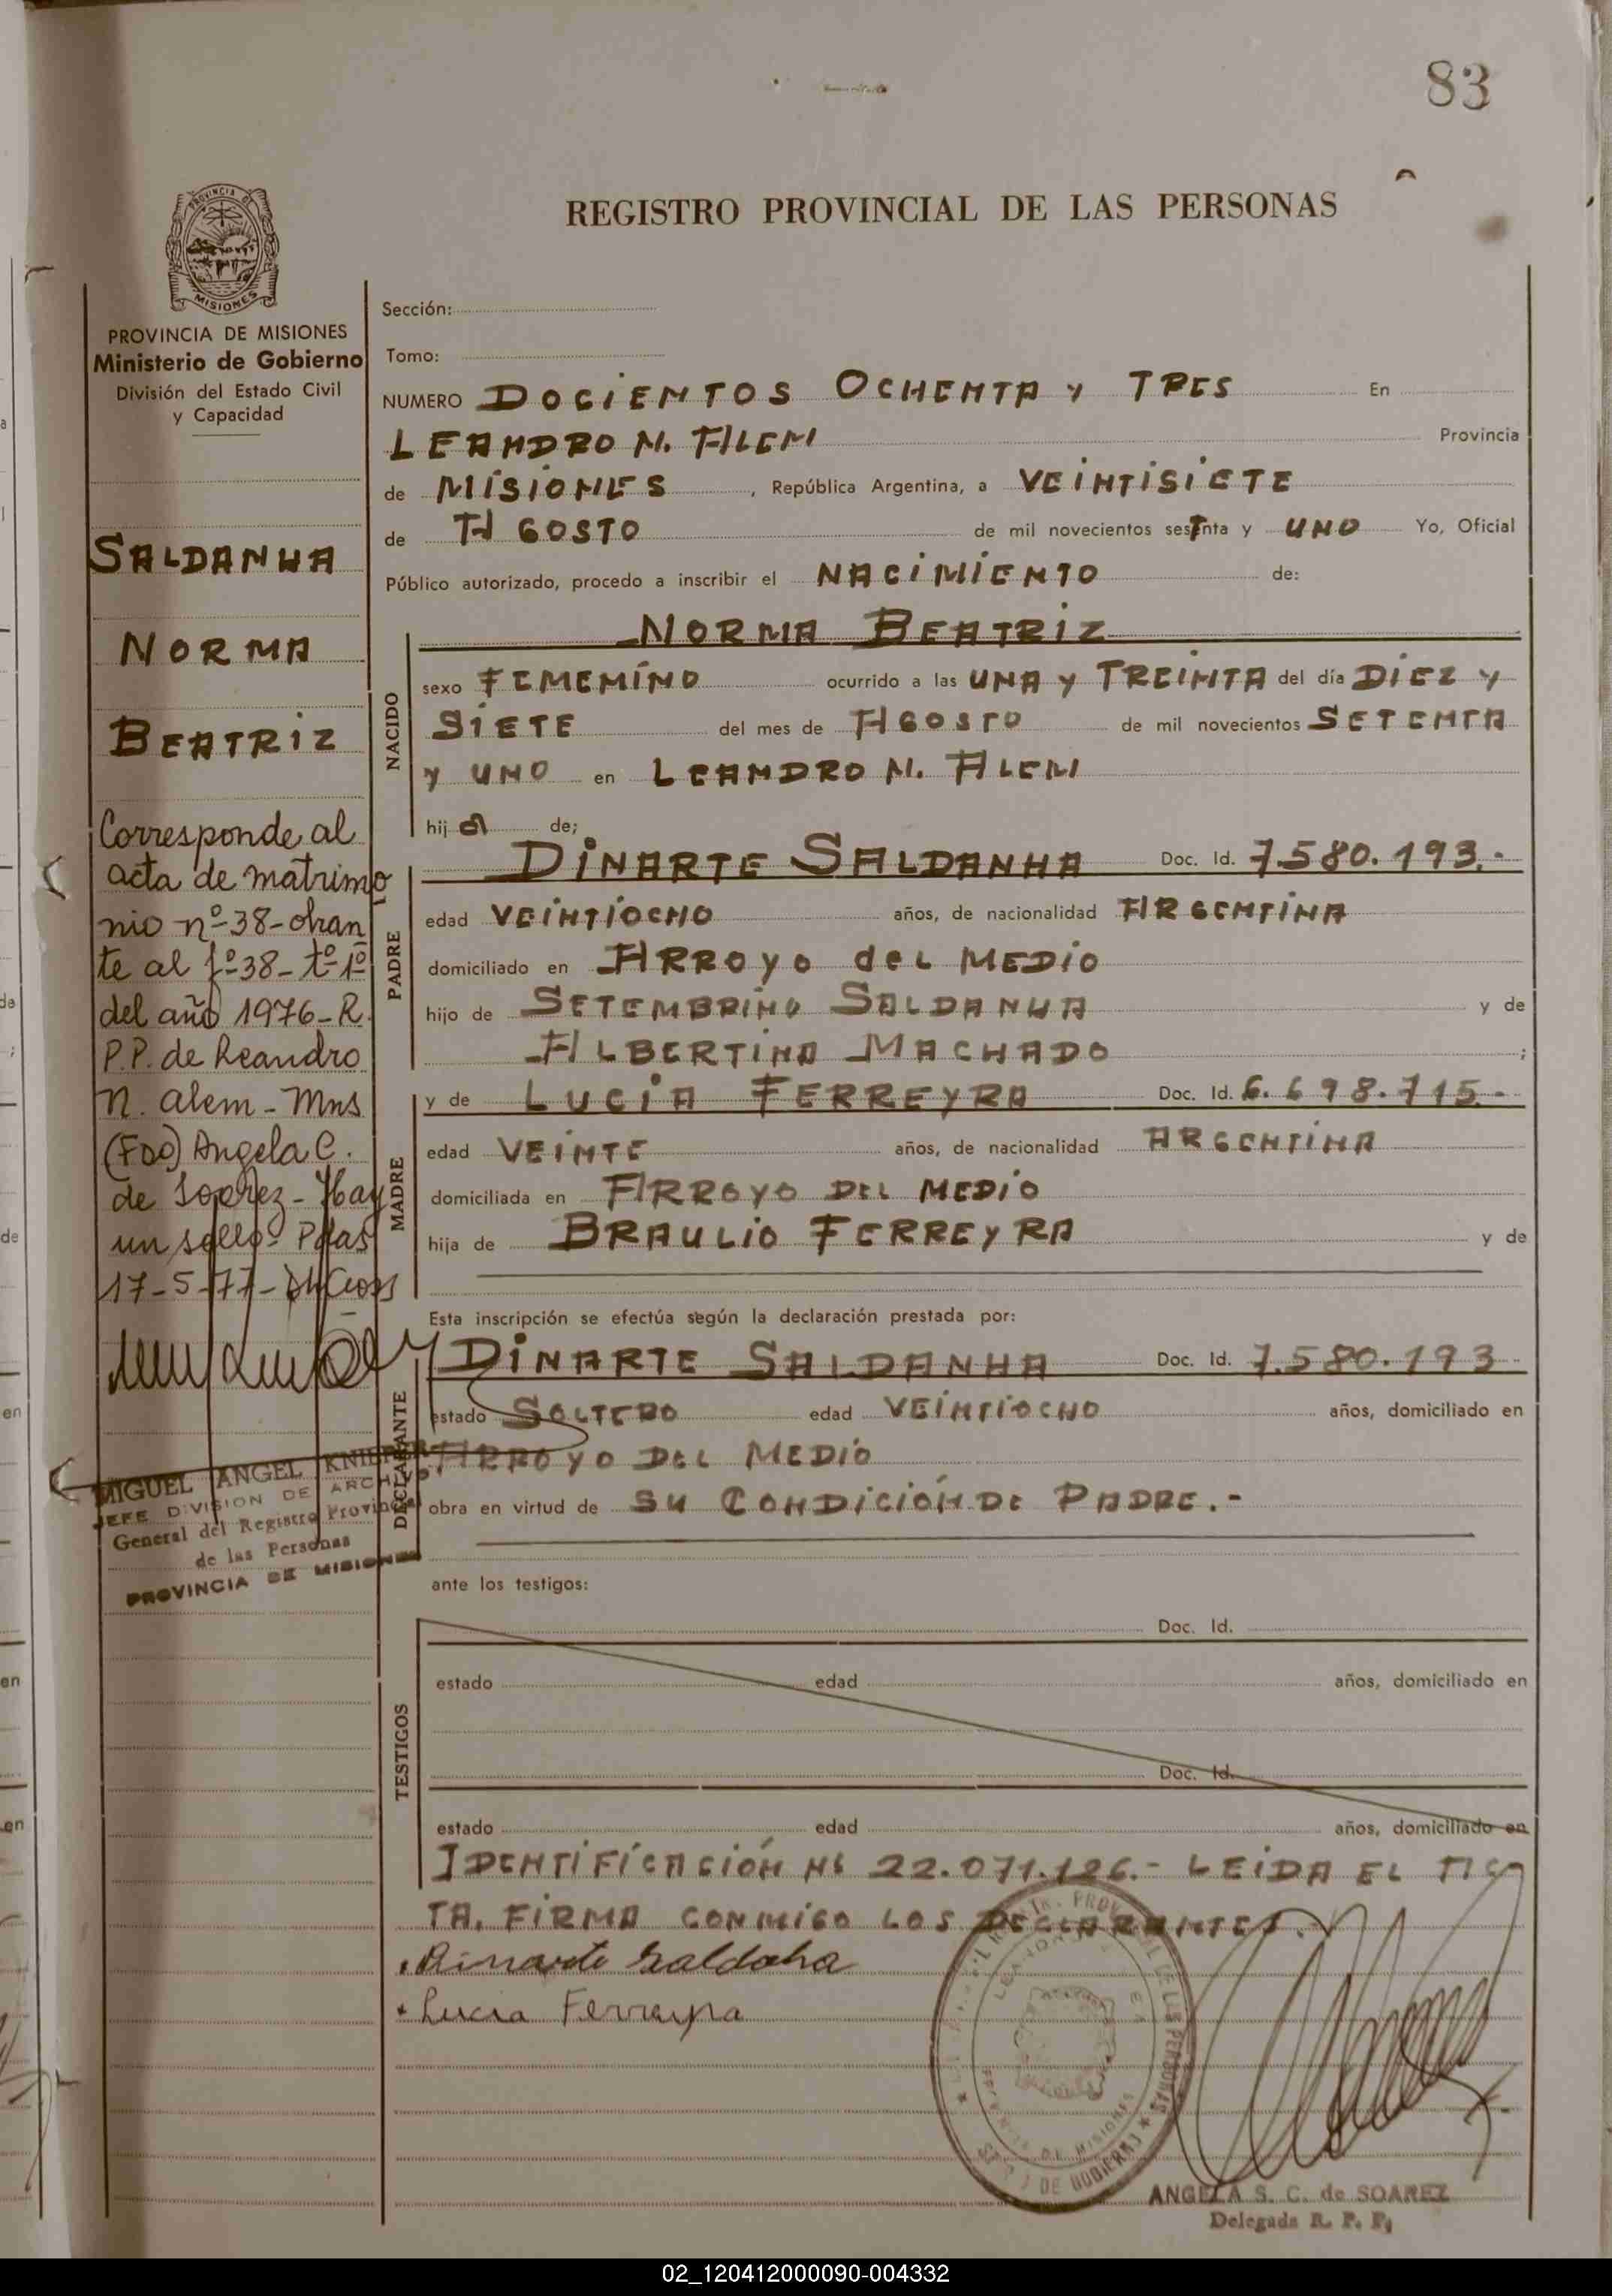 83
REGISTRO PROVINCIAL DE LAS PERSONAS
PROVINCIA
MISIONES
PROVINCIA DE MISIONES
Ministerio de Gobierno
División del Estado Civil
y Capacidad
SALDANHA
NORMA
BEATRIZ
Corresponde al
acta de matrimo
nio nº 38- obran
te al fº 38- tº 1º
del año 1976- R.
P.P. de Leandro
N. Alem - Mns
(Fdo) Angela C.
de Soarez - Hay
un sello- Pdas
17-5-77-
MIGUEL ANGEL KNIERER
JEFE DIVISION DE ARCHIVO
General del Registro Provincial
de las Personas
PROVINCIA DE MISIONES
Sección:
Tomo:
NUMERO DOCIENTOS OCHENTA Y TRES En
LEANDRO N. ALEM Provincia
de MISIONES, República Argentina, a VEINTISIETE
de AGOSTO de mil novecientos setenta y UNO Yo, Oficial
Público autorizado, procedo a inscribir el NACIMIENTO de:
NORMA BEATRIZ
NACIDO
sexo FEMENINO ocurrido a las UNA Y TREINTA del día DIEZ Y
SIETE del mes de AGOSTO de mil novecientos SETENTA
Y UNO en LEANDRO N. ALEM
hij a de;
PADRE
DINARTE SALDANHA Doc. Id. 7.580.193.-
edad VEINTIOCHO años, de nacionalidad ARGENTINA
domiciliado en ARROYO del MEDIO
hijo de SETEMBRINO SALDANHA y de
ALBERTINA MACHADO ;
MADRE
y de LUCIA FERREYRA Doc. Id. 6.698.715.-
edad VEINTE años, de nacionalidad ARGENTINA
domiciliada en ARROYO DEL MEDIO
hija de BRAULIO FERREYRA y de
Esta inscripción se efectúa según la declaración prestada por:
DECLARANTE
DINARTE SALDANHA Doc. Id. 7.580.193-
estado SOLTERO edad VEINTIOCHO años, domiciliado en
ARROYO DEL MEDIO
obra en virtud de SU CONDICIÓN DE PADRE.-
ante los testigos:
TESTIGOS
Doc. Id.
estado edad años, domiciliado en
Doc. Id.
estado edad años, domiciliado en
IDENTIFICACIÓN Nº 22.071.126.- LEIDA EL AC
TA, FIRMA CONMIGO LOS DECLARANTES.-
Dinarte Saldanha
Lucia Ferreyra
ANGELA S. C. de SOAREZ
Delegada R. P. P.
02_120412000090-004332